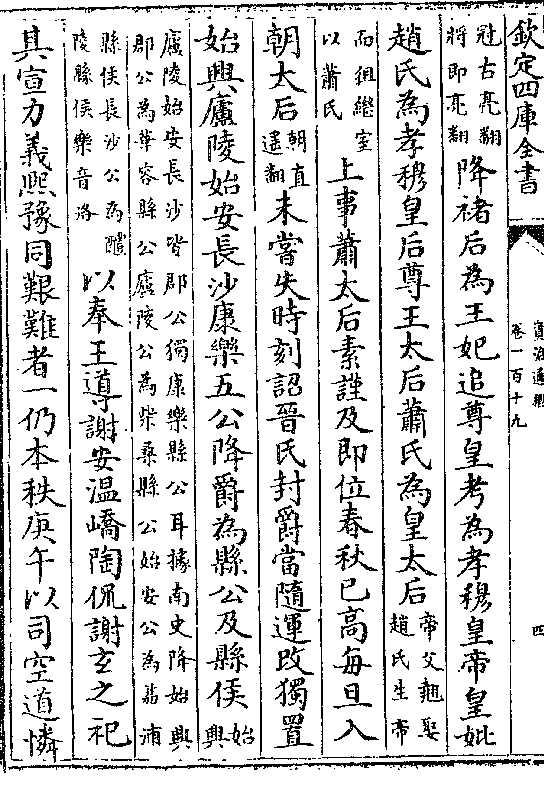 欽定四庫全書
資治通鑑
卷一百十九
四
冠古亮翻
將即亮翻
降褚后為王妃追尊皇考為孝穆皇帝皇妣
趙氏為孝穆皇后尊王太后蕭氏為皇太后
帝父翹娶
趙氏生帝
而殂繼室
以蕭氏
上事蕭太后素謹及即位春秋已高每旦入
朝太后
朝直
遙翻
未嘗失時刻詔晉氏封爵當隨運改獨置
始興廬陵始安長沙康樂五公降爵為縣公及縣侯
始
興
廬陵始安長沙皆郡公獨康樂縣公耳據南史降始興
郡公為華容縣公廬陵公為柴桑縣公始安公為荔浦
縣侯長沙公為醴
陵縣侯樂音洛
以奉王導謝安温嶠陶侃謝玄之祀
其宣力義熙豫同艱難者一仍本秩庚午以司空道憐